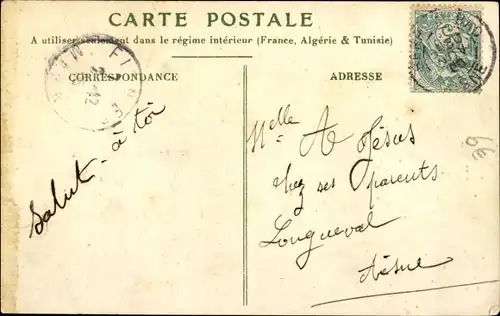 CARTE POSTALE
A utiliser seulement dans le régime intérieur (France, Algérie & Tunisie)
CORRESPONDANCE
ADRESSE
Salut à toi
Melle A Jésus
chez ses parents
Longueval
Aisne
39